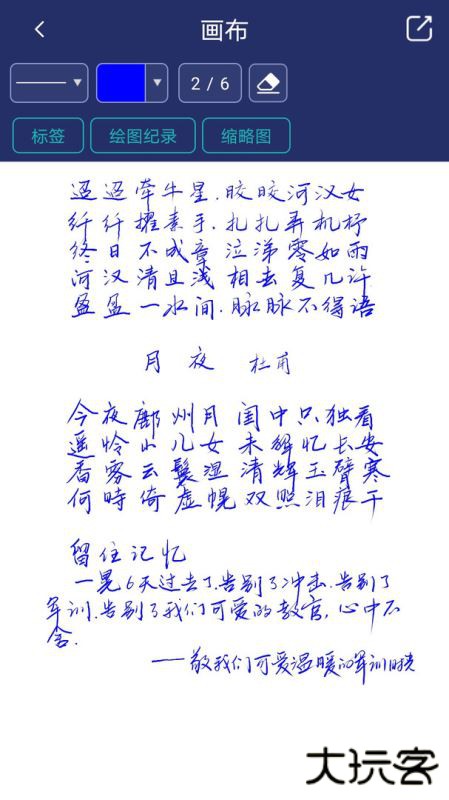 画布
2 / 6
标签 绘图纪录 缩略图
迢迢牵牛星.皎皎河汉女
纤纤擢素手.扎扎弄机杼
终日不成章 泣涕零如雨
河汉清且浅 相去复几许
盈盈一水间.脉脉不得语
月夜 杜甫
今夜鄜州月 闺中只独看
遥怜小儿女 未解忆长安
香雾云鬟湿 清辉玉臂寒
何時倚虚幌 双照泪痕干
留住记忆
一晃6天过去了.告别了冲击.告别了
军训.告别了我们可爱的教官,心中不
舍.
——敬我们可爱温暖的军训时光
大玩客